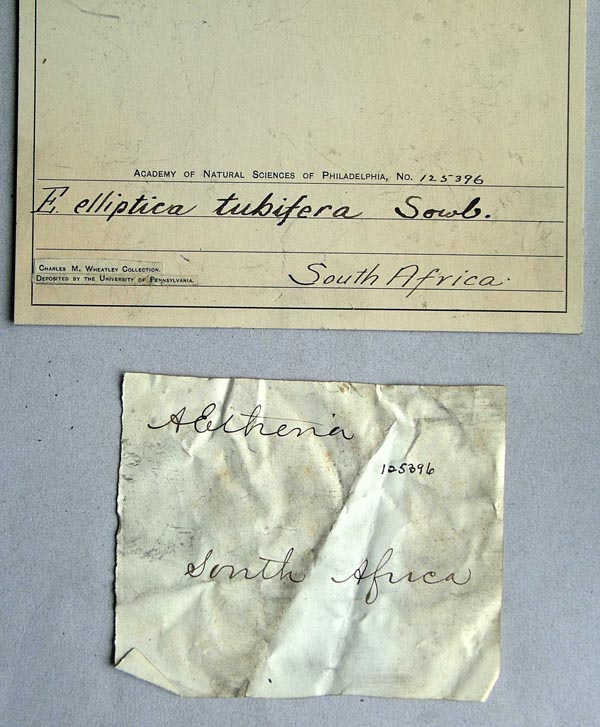 ACADEMY OF NATURAL SCIENCES OF PHILADELPHIA, NO. 125396
E. elliptica tubifera Sowb.
CHARLES M. WHEATLEY COLLECTION.
DEPOSITED BY THE UNIVERSITY OF PENNSYLVANIA.
South Africa.
AEtheria
125396
South Africa